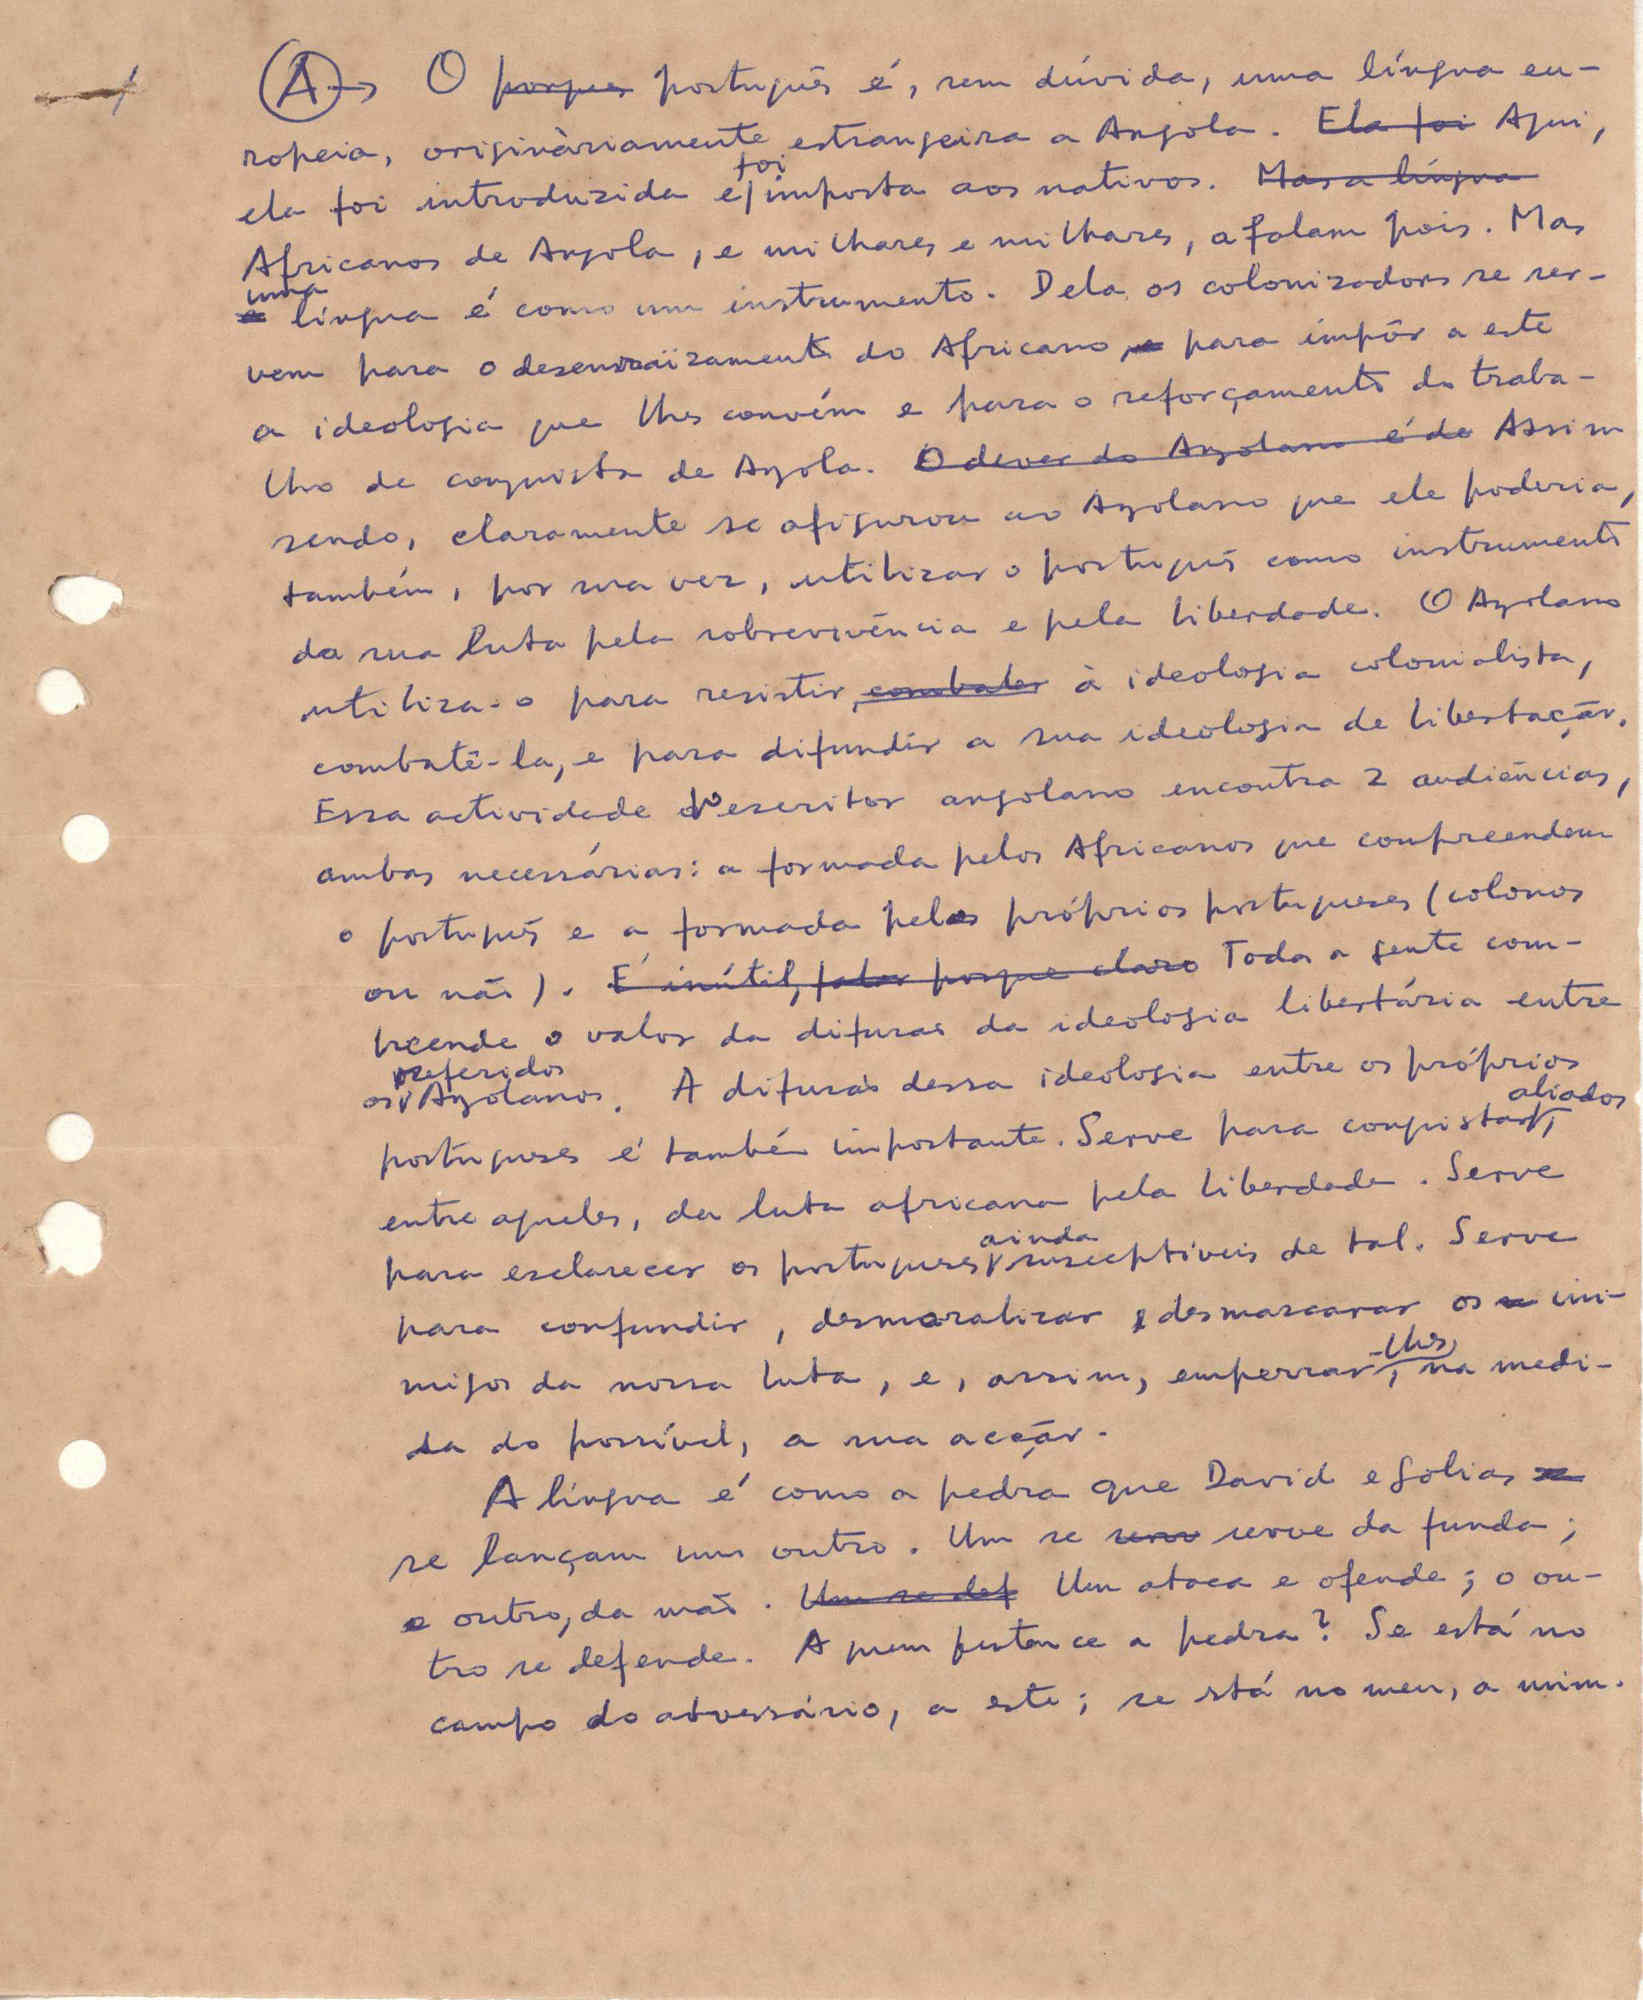 A → O porques português é, sem dúvida, uma língua eu-
ropeia, originàriamente estrangeira a Angola. Ela foi Aqui,
foi
ela foi introduzida e imposta aos nativos. Mas a língua
Africanos de Angola, e milhares e milhares, a falam pois. Mas
uma
a língua é como um instrumento. Dela os colonizadores se ser-
vem para o desenraïzamento do Africano, e para impôr a este
a ideologia que lhes convém e para o reforçamento do traba-
lho de conquista de Angola. O dever do Angolano é de Assim
sendo, claramente se afigurou ao Angolano que ele poderia,
também, por sua vez, utilizar o português como instrumento
da sua luta pela sobrevivência e pela liberdade. O Angolano
utiliza-o para resistir, combater à ideologia colonialista,
combatê-la, e para difundir a sua ideologia de libertação.
Essa actividade do escritor angolano encontra 2 audiências,
ambas necessárias: a formada pelos Africanos que compreendem
o português e a formada pelos próprios portugueses (colonos
ou não). É inútil, falar porque claro Toda a gente com-
preende o valor da difusão da ideologia libertária entre
referidos
os Angolanos. A difusão dessa ideologia entre os próprios
aliados
portugueses é também importante. Serve para conquistar,
entre aqueles, da luta africana pela liberdade. Serve
ainda
para esclarecer os portugueses susceptíveis de tal. Serve
para confundir, desmoralizar e desmascarar os ini-
-lhes,
migos da nossa luta, e, assim, emperrar, na medi-
da do possível, a sua acção.
A língua é como a pedra que David e Golias
se lançam um outro. Um se serve da funda;
e outro, da mão. Um se def Um ataca e ofende; o ou-
tro se defende. A quem pertence a pedra? Se está no
campo do adversário, a este; se está no meu, a mim.